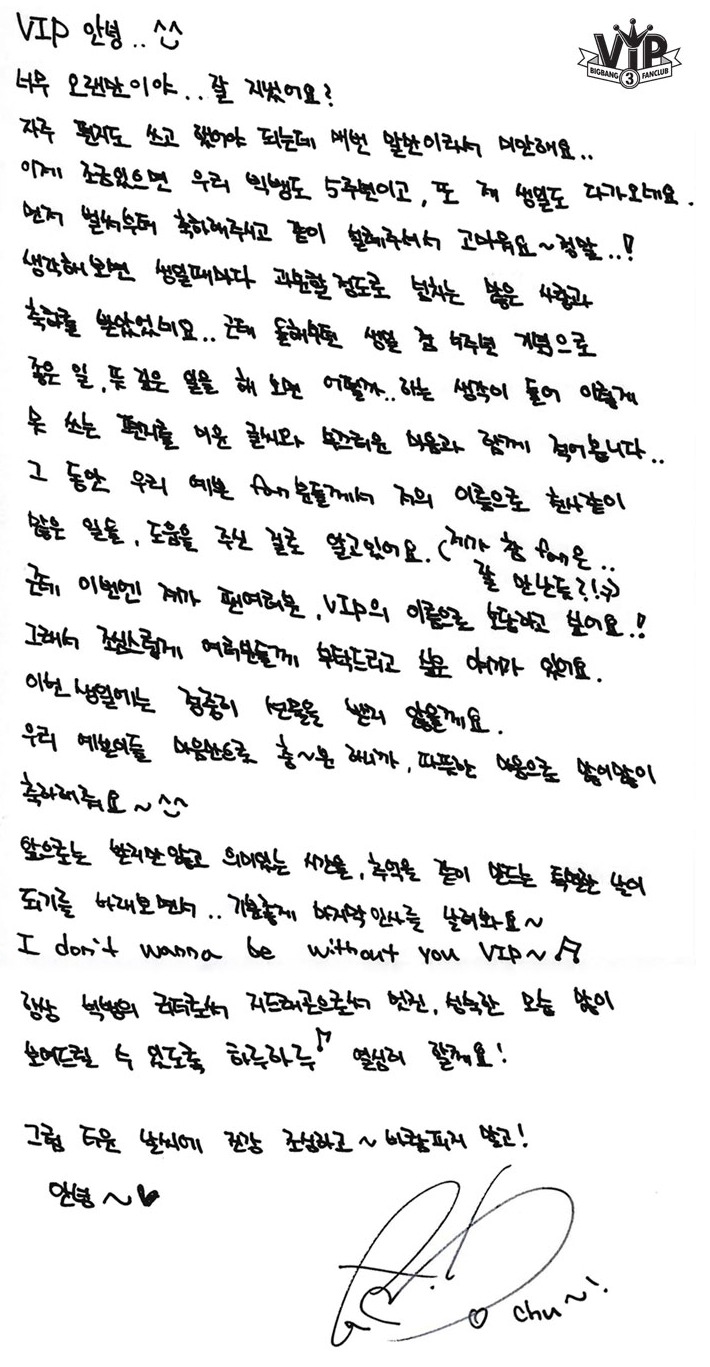 VIP 안녕..^^
VIP
BIGBANG 3 FANCLUB
너무 오랜만이야.. 잘 지냈어요?
자주 편지도 쓰고 했어야 되는데 매번 말만이라서 미안해요..
이제 조금있으면 우리 빅뱅도 5주년이고, 또 제 생일도 다가오네요.
먼저 벌써부터 축하해주시고 같이 설레주셔서 고마워요~정말..!
생각해보면 생일때마다 과분할 정도로 넘치는 많은 사랑과
축하를 받았었네요.. 근데 올해부턴 생일 겸 5주년 기념으로
좋은 일, 뜻 깊은 일을 해 보면 어떨까.. 하는 생각이 들어 이렇게
못 쓰는 편지를 미운 글씨와 부끄러운 마음과 함께 적어봅니다..
그 동안 우리 예쁜 fan분들께서 저의 이름으로 천사같이
많은 일들, 도움을 주신 걸로 알고있어요. (제가 참 fan은..
잘 만난듯?!:))
근데 이번엔 제가 팬여러분, VIP의 이름으로 보답하고 싶어요..!
그래서 조심스럽게 여러분들께 부탁드리고 싶은 얘기가 있어요.
이번 생일에는 정중히 선물을 받지 않을게요.
우리 예쁜이들 마음만으로 충~분 하니까, 따뜻한 마음으로 많이많이
축하해줘요~^^
앞으로는 받지만않고 의미있는 시간을, 추억을 같이 만드는 특별한 날이
되기를 바래보면서.. 기분좋게 마지막인사를 날려봐요~
I don't wanna be without you VIP~♬
항상 빅뱅의 리더로써 지드래곤으로써 멋진, 성숙한 모습 많이
보여드릴 수 있도록 하루하루♪ 열심히 할께요!
그럼 더운 날씨에 건강 조심하고~ 바람피지 말고!
안녕~♥
chu~!